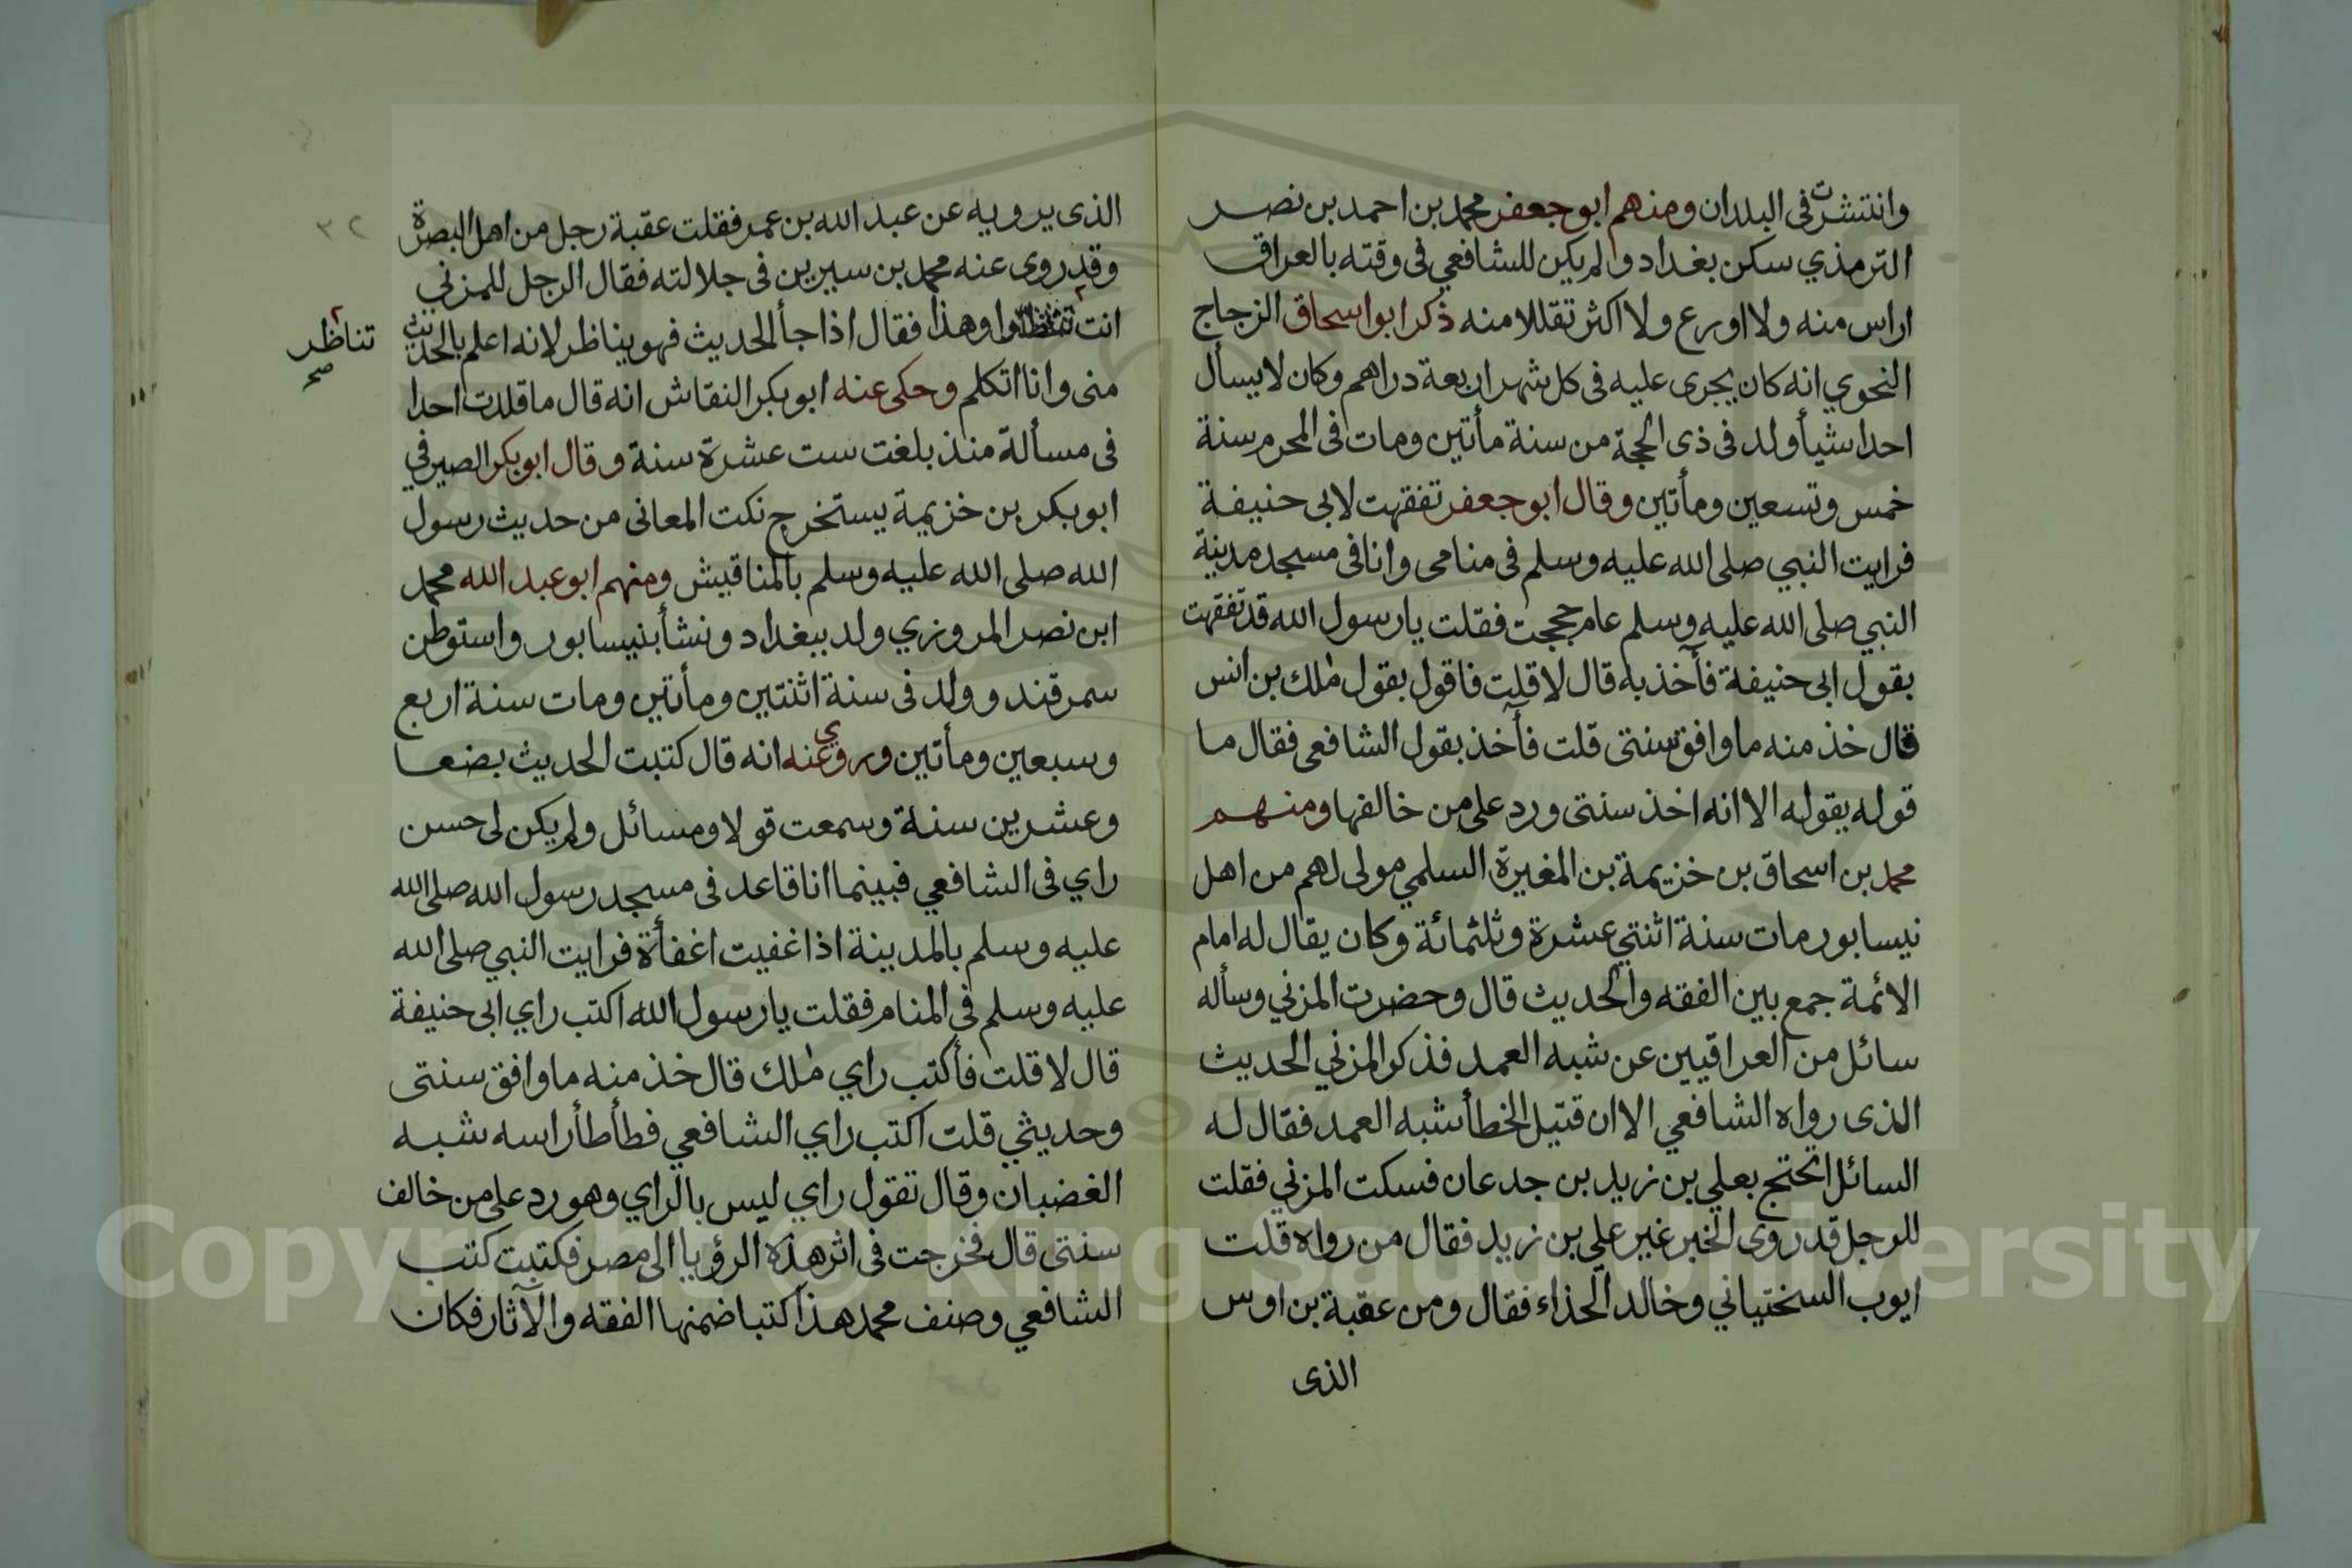 وانتشرت فى البلدان ومنهم ابو جعفر محمد بن احمد بن نصر
الترمذي سكن بغداد ولم يكن للشافعي فى وقته بالعراق
اراس منه ولا اورع ولا اكثر تقللا منه ذكر ابو اسحاق الزجاج
النحوي انه كان يجرى عليه فى كل شهر اربعة دراهم وكان لا يسأل
احدا شيأ ولد فى ذى الحجة من سنة مأتين ومات فى المحرم سنة
خمس وتسعين ومأتين وقال ابو جعفر تفقهت لابى حنيفة
فرايت النبي صلى الله عليه وسلم فى منامى وانا فى مسجد مدينة
النبي صلى الله عليه وسلم عام حججت فقلت يا رسول الله قد تفقهت
بقول ابى حنيفة فآخذ به قال لا قلت فاقول بقول ملك بن انس
قال خذ منه ما وافق سنتى قلت فآخذ بقول الشافعى فقال ما
قوله بقوله الا انه اخذ سنتى ورد على من خالفها ومنهم
محمد بن اسحاق بن خزيمة بن المغيرة السلمي مولى لهم من اهل
نيسابور مات سنة اثنتي عشرة وثلثمائة وكان يقال له امام
الائمة جمع بين الفقه والحديث قال وحضرت المزني وسأله
سائل من العراقيين عن شبه العمد فذكر المزني الحديث
الذى رواه الشافعي الا ان قتيل الخطأ شبه العمد فقال له
السائل اتحتج بعلي بن زيد بن جدعان فسكت المزني فقلت
للرجل قد روى الخبر غير علي بن زيد فقال من رواه قلت
ايوب السختياني وخالد الحذاء فقال ومن عقبة بن اوس
الذى
الذى يرويه عن عبد الله بن عمر فقلت عقبة رجل من اهل البصرة
وقد روى عنه محمد بن سيرين فى جلالته فقال الرجل للمزني
انت او هذا فقال اذا جأ الحديث فهو يناظر لانه اعلم بالحديث
تناظر
صح
منى وانا اتكلم وحكى عنه ابو بكر النقاش انه قال ما قلدت احدا
فى مسألة منذ بلغت ست عشرة سنة وقال ابو بكر الصيرفي
ابو بكر بن خزيمة يستخرج نكت المعانى من حديث رسول
الله صلى الله عليه وسلم بالمناقيش ومنهم ابو عبد الله محمد
ابن نصر المروزي ولد ببغداد ونشأ بنيسابور واستوطن
سمرقند وولد فى سنة اثنتين ومأتين ومات سنة اربع
وسبعين ومأتين وروي عنه انه قال كتبت الحديث بضعا
وعشرين سنة وسمعت قولا ومسائل ولم يكن لى حسن
راي فى الشافعي فبينما انا قاعد فى مسجد رسول الله صلى الله
عليه وسلم بالمدينة اذ اغفيت اغفأة فرايت النبي صلى الله
عليه وسلم في المنام فقلت يا رسول الله اكتب راي ابى حنيفة
قال لا قلت فأكتب راي ملك قال خذ منه ما وافق سنتى
وحديثي قلت اكتب راي الشافعي فطأطأ راسه شبه
الغضبان وقال تقول راي ليس بالراي وهو رد على من خالف
سنتى قال فخرجت فى اثر هذه الرؤيا الى مصر فكتبت كتب
الشافعي وصنف محمد هذا كتبا ضمنها الفقه والآثار فكان
٣٢
Copyright © King Saud University